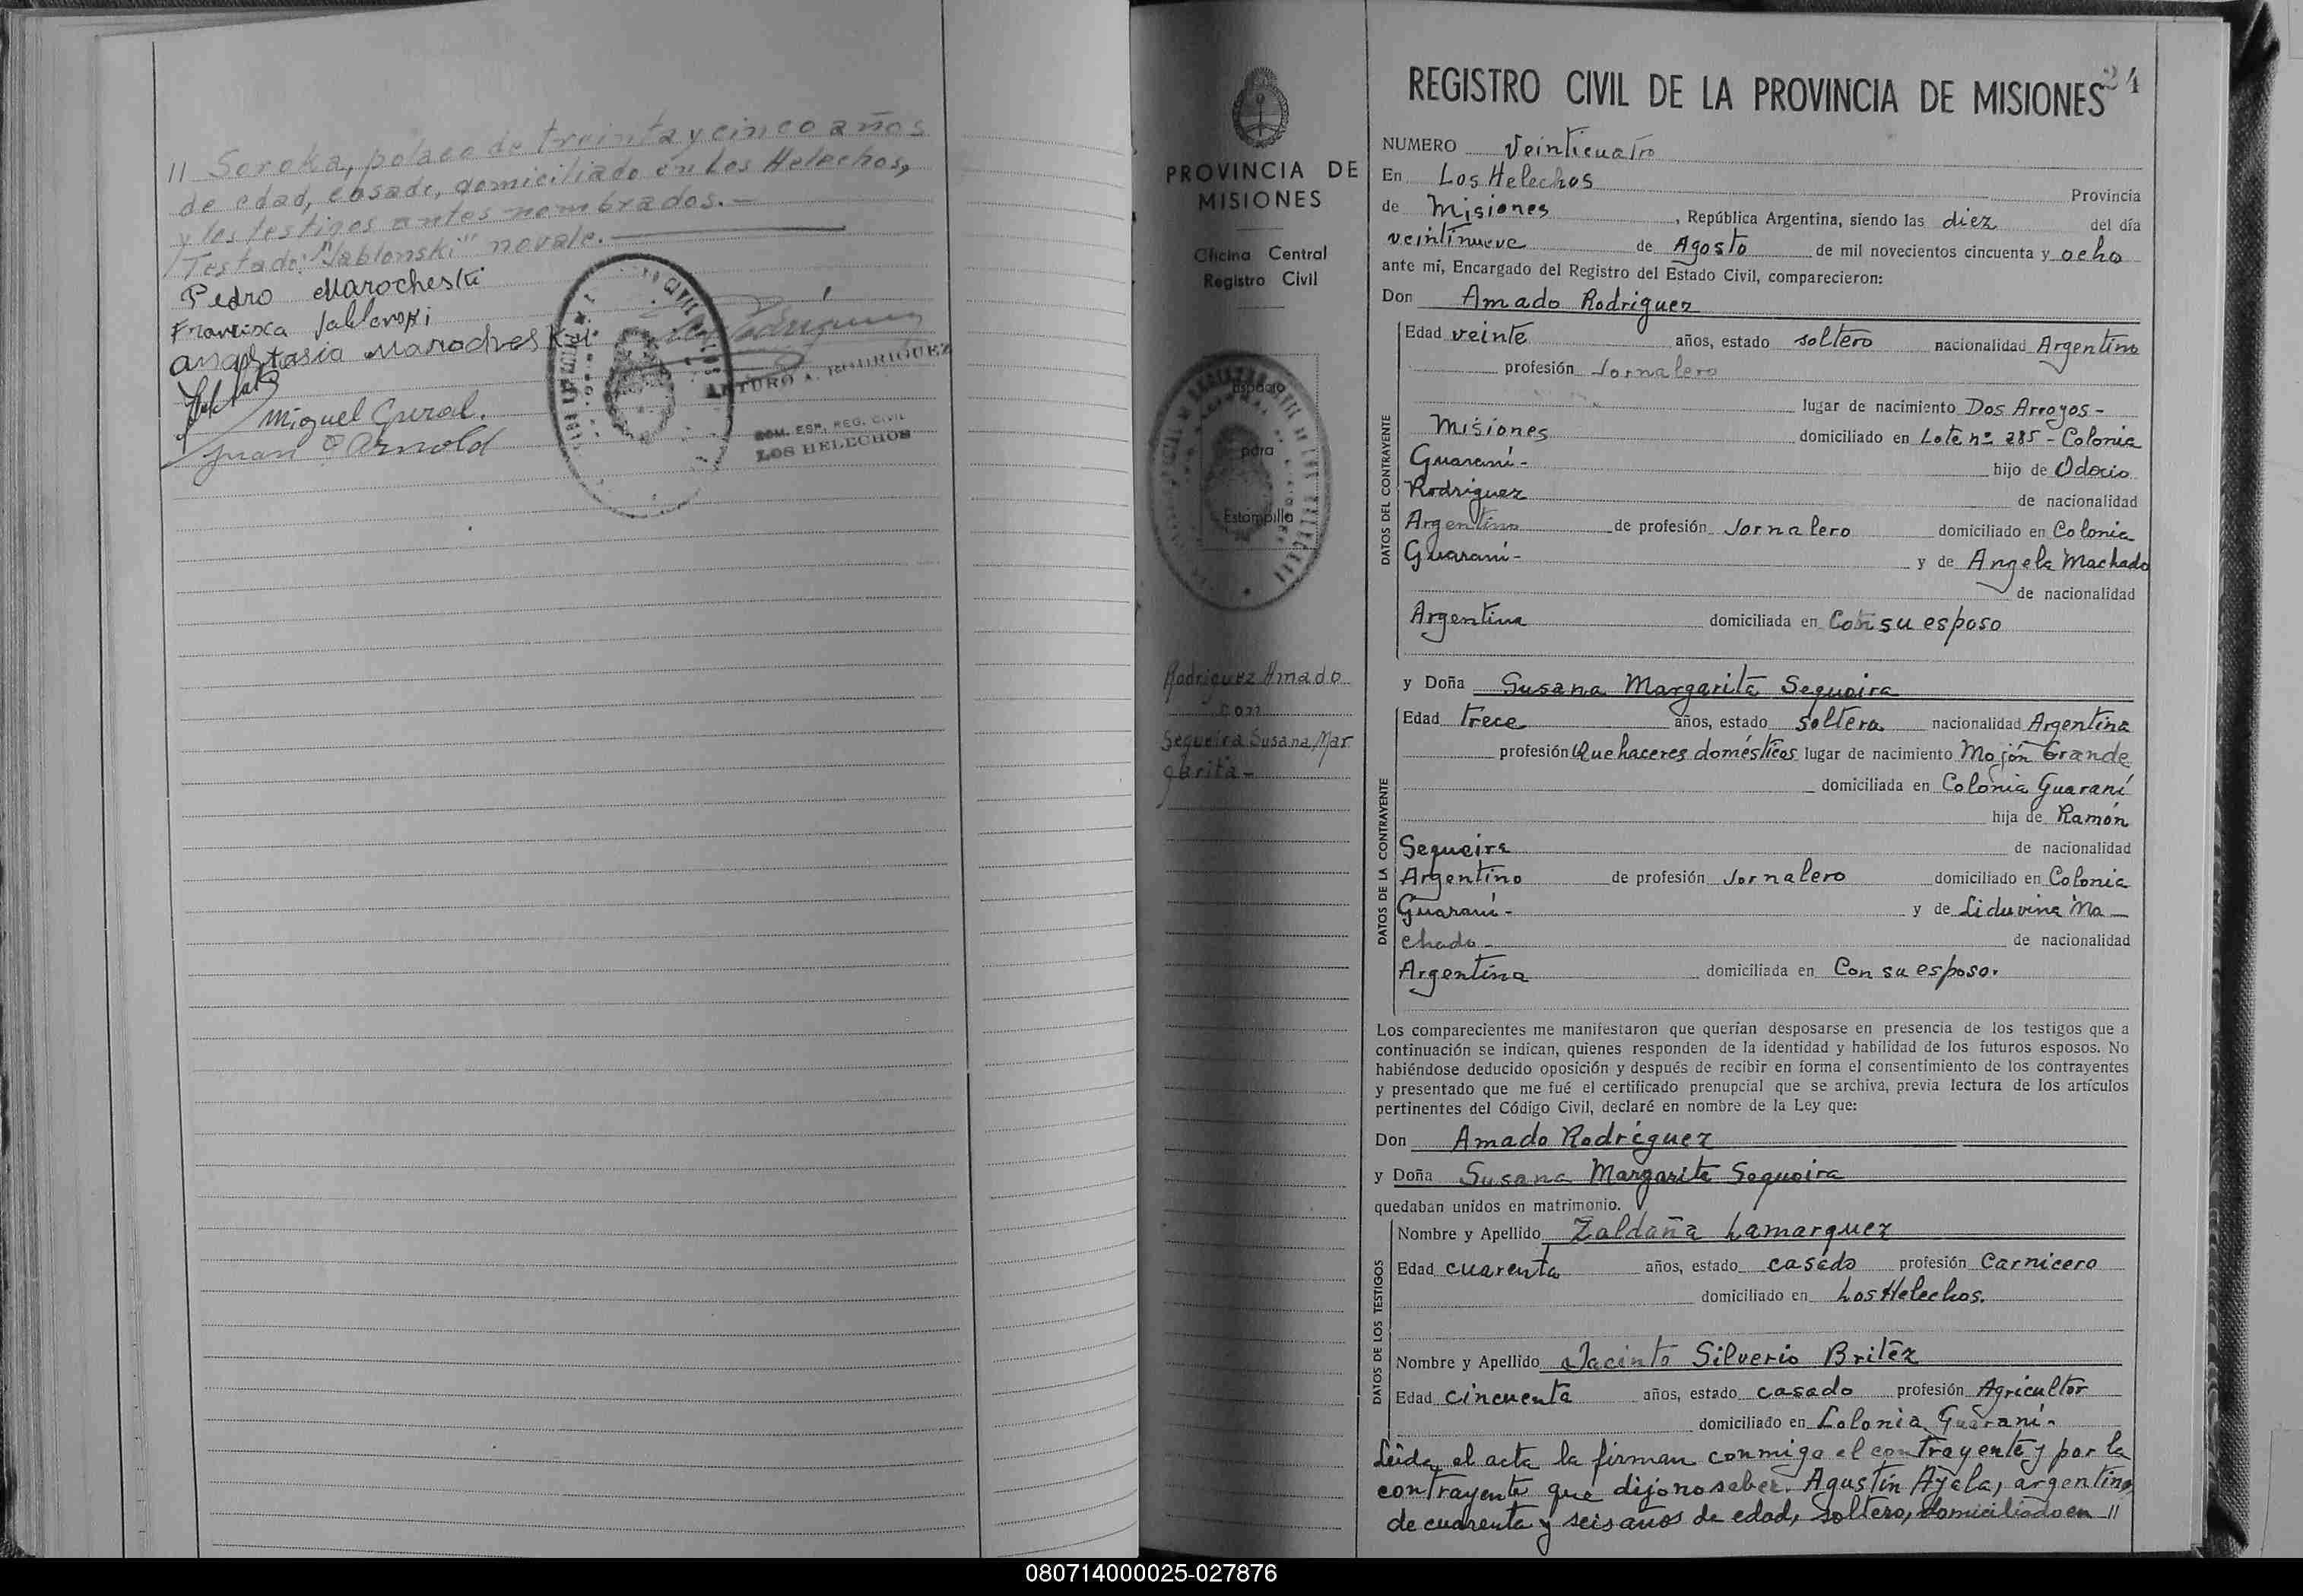 // Soroka, polaco de treinta y cinco años
de edad, casado, domiciliado en Los Helechos,
y los testigos antes nombrados.-
Testado: "Jablonski" no vale.
Pedro Marocheski
Francisca Jablonski
Anastasia Marocheski
Miguel Gural.
Juan Arnold
ARTURO A. RODRIGUEZ
REG. CIVIL
LOS HELECHOS
24
PROVINCIA DE
MISIONES
Oficina Central
Registro Civil
Espacio
para
Estampilla
Rodriguez Amado
con
Sequeira Susana Mar
garita-
REGISTRO CIVIL DE LA PROVINCIA DE MISIONES
NUMERO Veinticuatro
En Los Helechos Provincia
de Misiones, República Argentina, siendo las diez del día
veintinueve de Agosto de mil novecientos cincuenta y ocho
ante mí, Encargado del Registro del Estado Civil, comparecieron:
Don Amado Rodriguez
DATOS DEL CONTRAYENTE
Edad veinte años, estado soltero nacionalidad Argentino
profesión Jornalero
lugar de nacimiento Dos Arroyos-
Misiones domiciliado en Lote nº 285 - Colonia
Guaraní- hijo de Odocio
Rodriguez de nacionalidad
Argentino de profesión Jornalero domiciliado en Colonia
Guaraní- y de Angela Machado
de nacionalidad
Argentina domiciliada en Con su esposo
y Doña Susana Margarita Sequeira
DATOS DE LA CONTRAYENTE
Edad trece años, estado soltera nacionalidad Argentina
profesión Quehaceres domésticos lugar de nacimiento Mojón Grande
domiciliada en Colonia Guaraní
hija de Ramón
Sequeira de nacionalidad
Argentino de profesión Jornalero domiciliado en Colonia
Guaraní- y de Liduvina Ma-
chado- de nacionalidad
Argentina domiciliada en Con su esposo.
Los comparecientes me manifestaron que querían desposarse en presencia de los testigos que a
continuación se indican, quienes responden de la identidad y habilidad de los futuros esposos. No
habiéndose deducido oposición y después de recibir en forma el consentimiento de los contrayentes
y presentado que me fué el certificado prenupcial que se archiva, previa lectura de los artículos
pertinentes del Código Civil, declaré en nombre de la Ley que:
Don Amado Rodríguez
y Doña Susana Margarita Sequeira
quedaban unidos en matrimonio.
DATOS DE LOS TESTIGOS
Nombre y Apellido Zaldaña Lamarquez
Edad cuarenta años, estado casado profesión Carnicero
domiciliado en Los Helechos.
Nombre y Apellido Jacinto Silverio Britez
Edad cincuenta años, estado casado profesión Agricultor
domiciliado en Colonia Guaraní-
Leída el acta la firman conmigo el contrayente y por la
contrayente que dijo no saber. Agustín Ayala, argentino
de cuarenta y seis años de edad, soltero, domiciliado en //
080714000025-027876